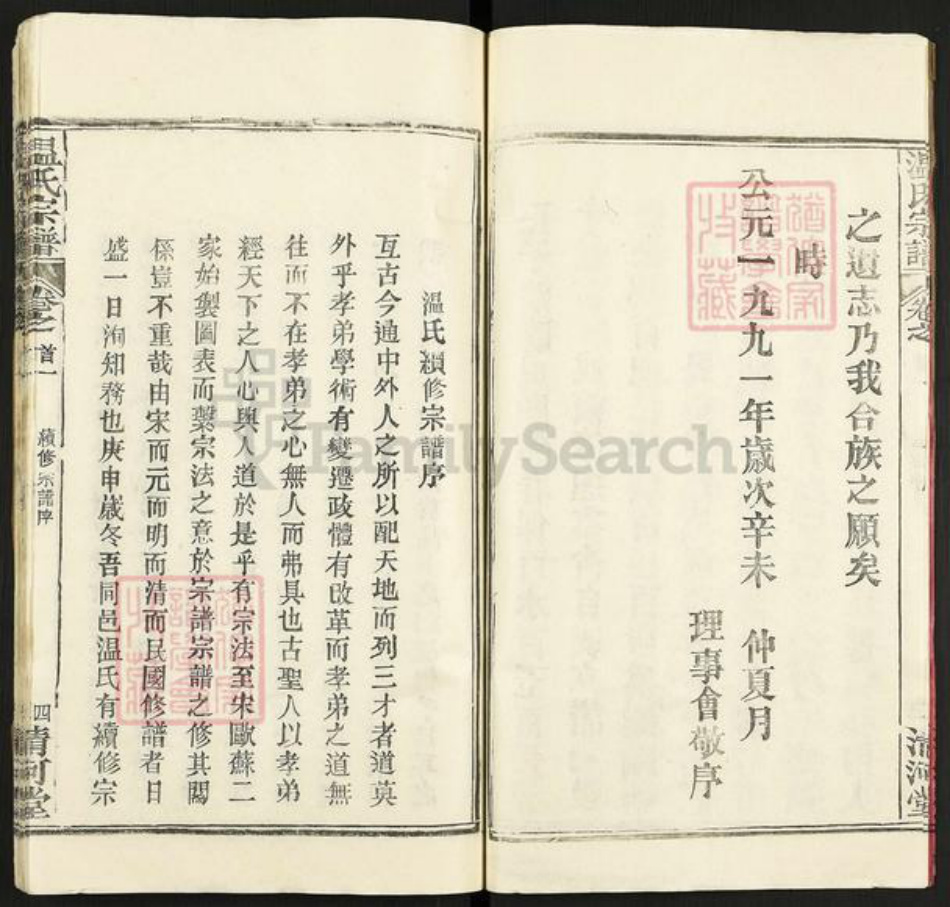 温氏宗譜
卷之
清河堂
之遺志乃我合族之願矣
時
公元一九九一年歲次辛未　仲夏月
理事會敬序
溫氏續修宗譜序
亙古今通中外人之所以配天地而列三才者道莫
外乎孝弟學術有變遷政體有改革而孝弟之道無
往而不在孝弟之心無人而弗具也古聖人以孝弟
經天下之人心與人道於是乎有宗法至宋歐蘇二
家始製圖表而繫宗法之意於宗譜宗譜之修其關
係豈不重哉由宋而元而明而清而民國修譜者日
盛一日洵知務也庚申歲冬吾同邑温氏有續修宗
温氏宗譜
卷之一
首一
續修宗譜序
四
清河堂
FamilySearch